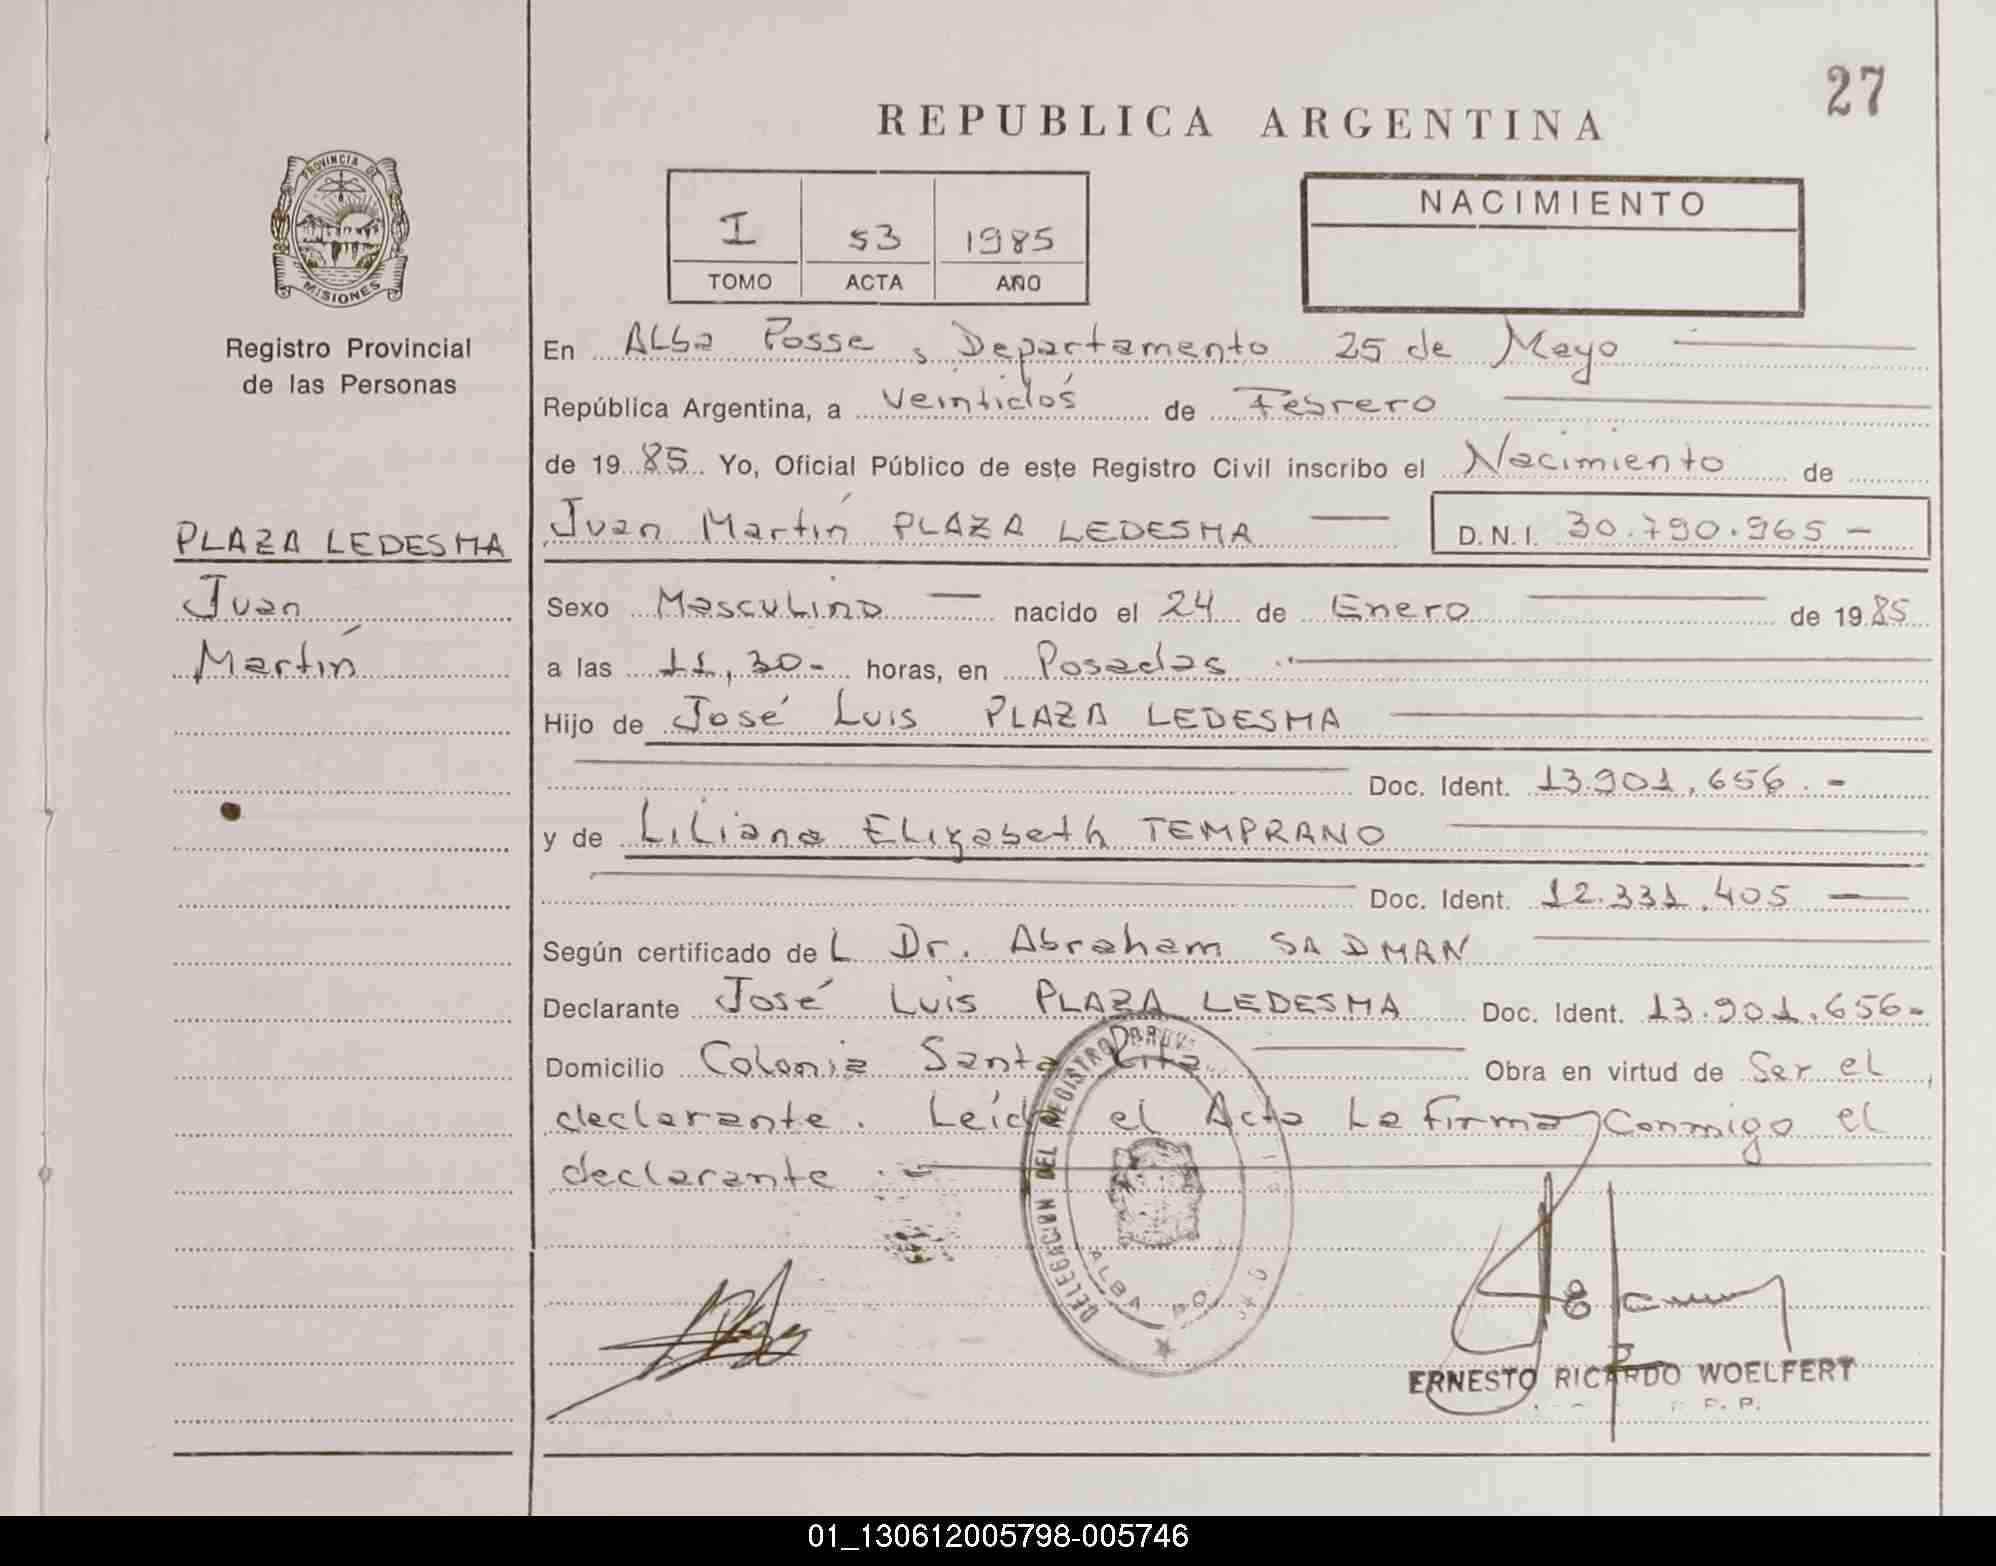 27
REPUBLICA ARGENTINA
PROVINCIA DE
MISIONES
Registro Provincial
de las Personas
I 53 1985
TOMO ACTA AÑO
NACIMIENTO
En Alba Posse, Departamento 25 de Mayo
República Argentina, a veintidós de Febrero
de 1985 Yo, Oficial Público de este Registro Civil inscribo el Nacimiento de
PLAZA LEDESMA
Juan
Martín
Juan Martín PLAZA LEDESMA — D.N.I. 30.790.965 -
Sexo Masculino — nacido el 24 de Enero de 1985
a las 11,30- horas, en Posadas
Hijo de José Luis PLAZA LEDESMA
Doc. Ident. 13.901.656.-
y de Liliana Elizabeth TEMPRANO
Doc. Ident. 12.331.405 —
Según certificado del Dr. Abraham SADMAN
Declarante José Luis PLAZA LEDESMA Doc. Ident. 13.901.656-
Domicilio Colonia Santa Rita Obra en virtud de Ser el
declarante. Leída el Acta La firma Conmigo el
declarante.-
DELEGACION DEL REGISTRO PROV
ALBA PO
ERNESTO RICARDO WOELFERT
01_130612005798-005746